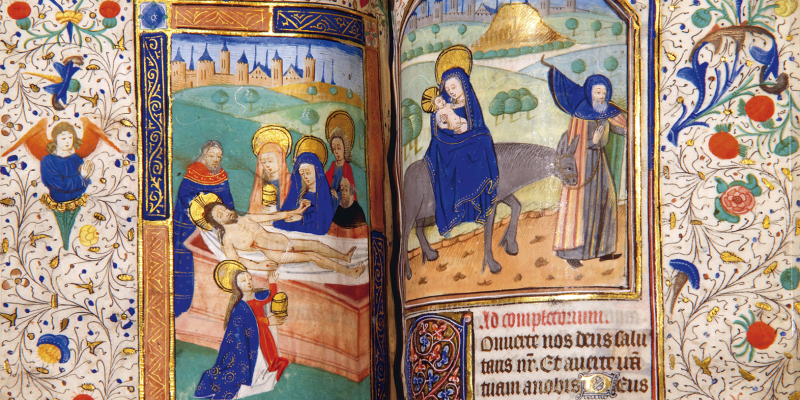 Ad completorium.
COnuerte nos deus salu
taris nr̄. Et auerte irā
tuam anobis DEus